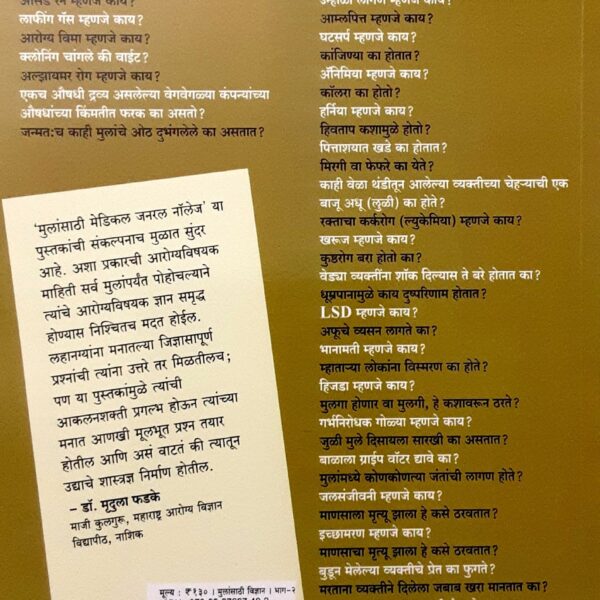 लाफींग गॅस म्हणजे काय?
आरोग्य विमा म्हणजे काय?
क्लोनिंग चांगले की वाईट?
अल्झायमर रोग म्हणजे काय?
एकच औषधी द्रव्य असलेल्या वेगवेगळ्या कंपन्यांच्या
औषधांच्या किंमतीत फरक का असतो?
जन्मत:च काही मुलांचे ओठ दुभंगलेले का असतात?
'मुलांसाठी मेडिकल जनरल नॉलेज' या
पुस्तकांची संकल्पनाच मुळात सुंदर
आहे. अशा प्रकारची आरोग्यविषयक
माहिती सर्व मुलांपर्यंत पोहोचल्याने
त्यांचे आरोग्यविषयक ज्ञान समृद्ध
होण्यास निश्चितच मदत होईल.
लहानग्यांना मनातल्या जिज्ञासापूर्ण
प्रश्नांची त्यांना उत्तरे तर मिळतीलच;
पण या पुस्तकांमुळे त्यांची
आकलनशक्ती प्रगल्भ होऊन त्यांच्या
मनात आणखी मूलभूत प्रश्न तयार
होतील आणि असं वाटतं की त्यातून
उद्याचे शास्त्रज्ञ निर्माण होतील.
– डॉ. मृदुला फडके
माजी कुलगुरू, महाराष्ट्र आरोग्य विज्ञान
विद्यापीठ, नाशिक
मूल्य : ₹१३० । मुलांसाठी विज्ञान । भाग-२
म्हणजे काय?
आम्लपित्त म्हणजे काय?
घटसर्प म्हणजे काय?
कांजिण्या का होतात?
ॲनिमिया म्हणजे काय?
कॉलरा का होतो?
हर्निया म्हणजे काय?
हिवताप कशामुळे होतो?
पित्ताशयात खडे का होतात?
मिरगी वा फेफरे का येते?
काही वेळा थंडीतून आलेल्या व्यक्तीच्या चेहऱ्याची एक
बाजू अधू (लुळी) का होते?
रक्ताचा कर्करोग (ल्युकेमिया) म्हणजे काय?
खरूज म्हणजे काय?
कुष्ठरोग बरा होतो का?
वेड्या व्यक्तींना शॉक दिल्यास ते बरे होतात का?
धूम्रपानामुळे काय दुष्परिणाम होतात?
LSD म्हणजे काय?
अफूचे व्यसन लागते का?
भानामती म्हणजे काय?
म्हाताऱ्या लोकांना विस्मरण का होते?
हिजडा म्हणजे काय?
मुलगा होणार वा मुलगी, हे कशावरून ठरते?
गर्भनिरोधक गोळ्या म्हणजे काय?
जुळी मुले दिसायला सारखी का असतात?
बाळाला ग्राईप वॉटर द्यावे का?
मुलांमध्ये कोणकोणत्या जंतांची लागण होते?
जलसंजीवनी म्हणजे काय?
माणसाला मृत्यू झाला हे कसे ठरवतात?
इच्छामरण म्हणजे काय?
माणसाचा मृत्यू झाला हे कसे ठरवतात?
बुडून मेलेल्या व्यक्तीचे प्रेत का फुगते?
मरताना व्यक्तीने दिलेला जबाब खरा मानतात का?